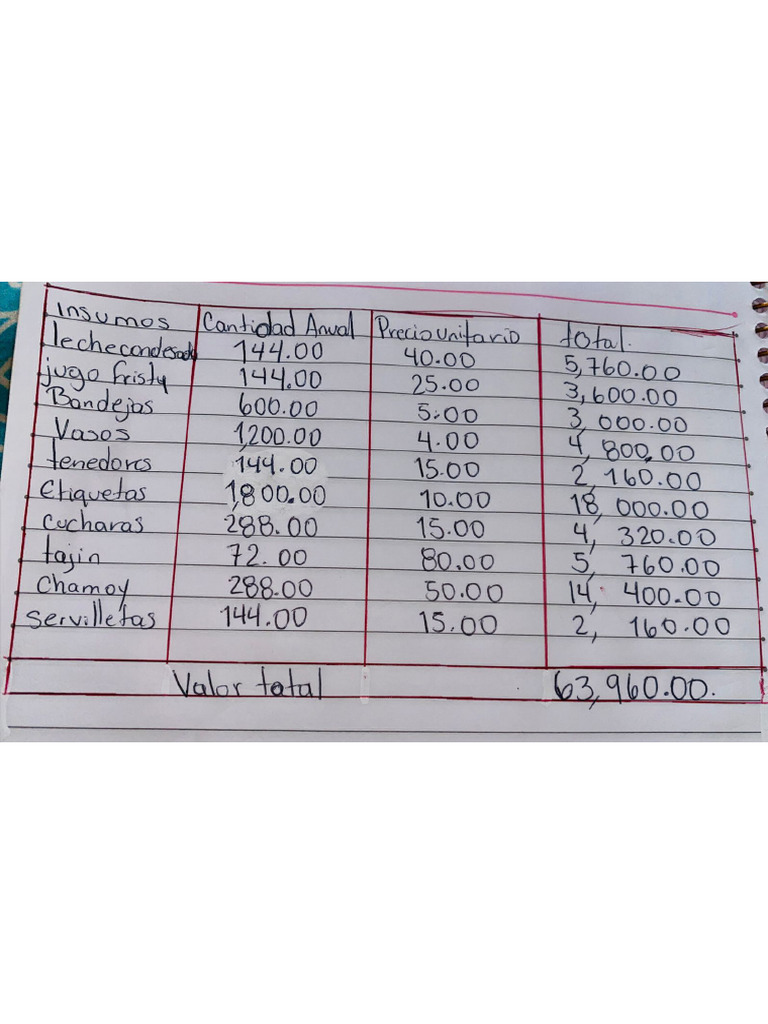 Insumos Cantidad Anual Precio unitario total.
leche condesada 144.00 40.00 5,760.00
jugo fristy 144.00 25.00 3,600.00
Bandejas 600.00 5.00 3,000.00
Vasos 1,200.00 4.00 4,800.00
tenedores 144.00 15.00 2,160.00
Etiquetas 1,800.00 10.00 18,000.00
cucharas 288.00 15.00 4,320.00
tajin 72.00 80.00 5,760.00
Chamoy 288.00 50.00 14,400.00
servilletas 144.00 15.00 2,160.00
Valor total 63,960.00.